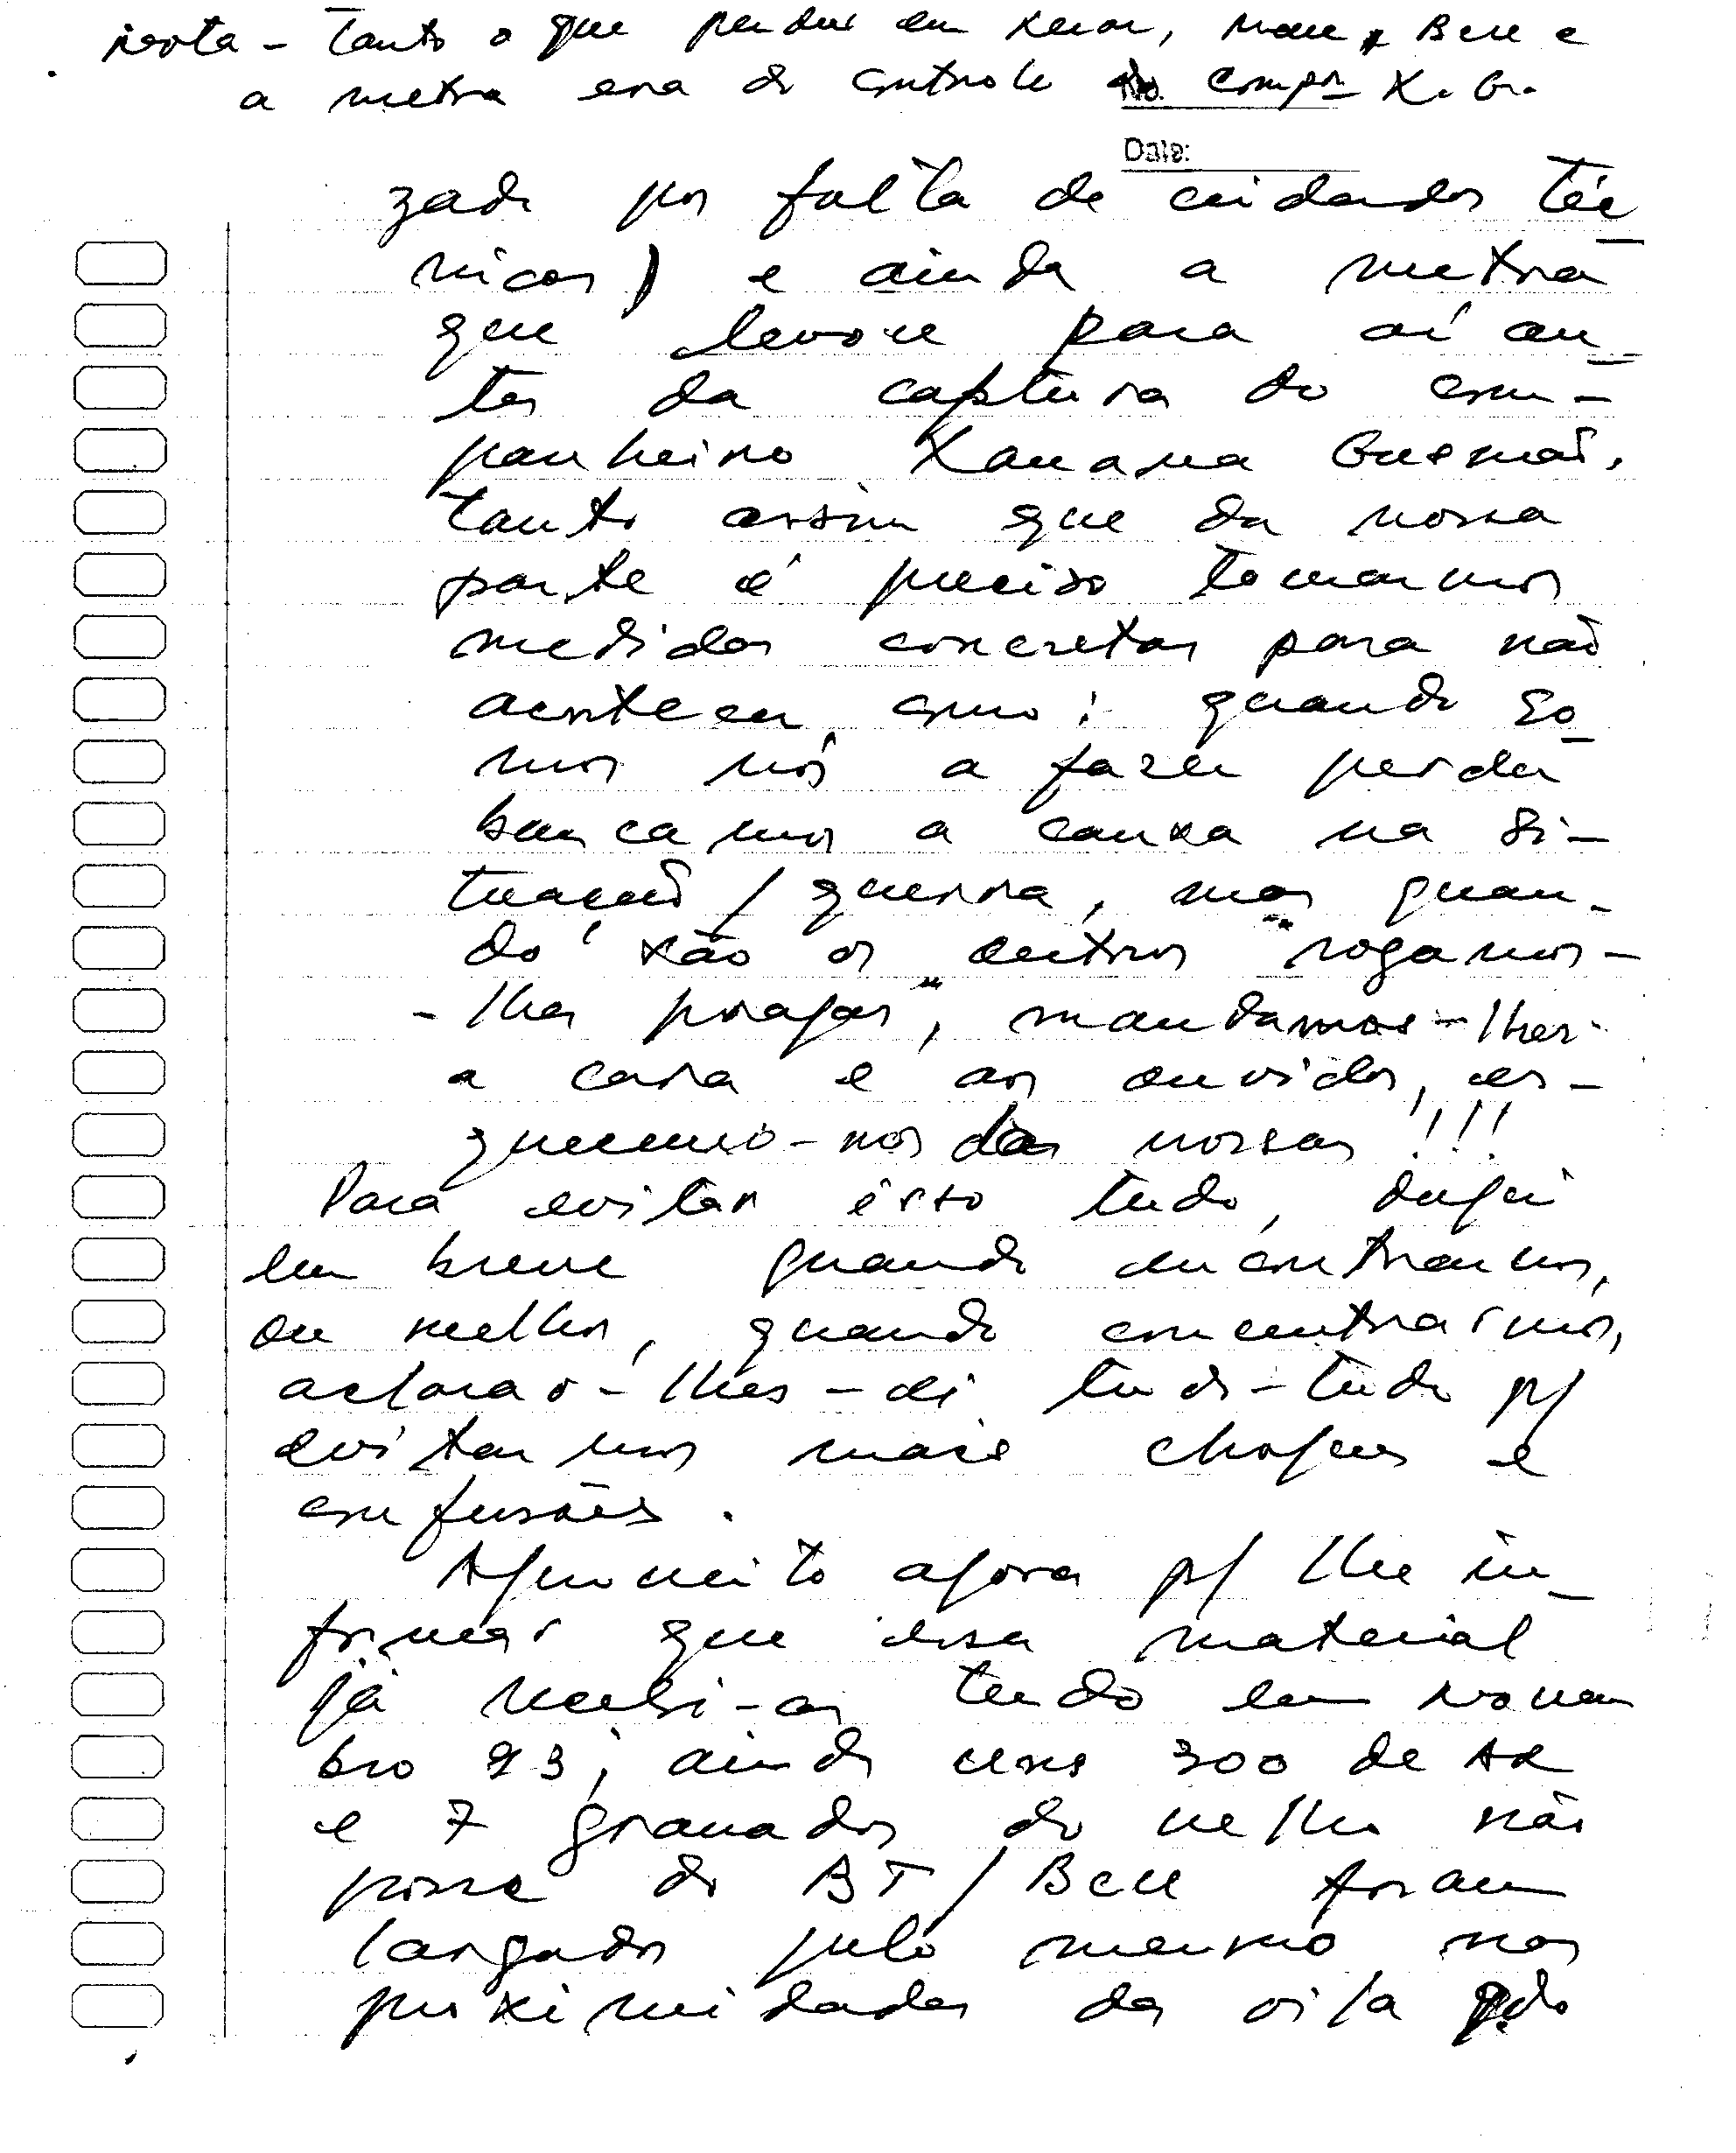 nota - Tanto o que perdeu em Kenar, Mau, Bere e
a metra era do controle do compº X. G.
No.
Date:
zado por falta de cuidados téc
nicos) e ainda a metra
que levou para aí an
tes da captura do com-
panheiro Xanana Gusmão.
Tanto assim que da nossa
parte é preciso tomarmos
medidas concretas para não
acontecer como: quando so
mos nós a fazer perder
buscamos a causa na si-
tuação/guerra, mas quan-
do são os outros "rogamos-
-lhes pragas", mandamos-lhes
a cara e os ouvidos, es-
quecemo-nos das nossas!!!
Para evitar isso tudo, daqui
em breve quando encontrarmos,
ou melhor, quando concentrarmos,
aclarar-lhes-ei tudo-tudo p/
evitarmos mais choques e
confusões.
Aproveito agora p/ lhe in
formar que desse material
já recebi-os tudo em Novem
bro 93; ainda uns 300 de AR
e 7 granadas do velho não
posse do BT/Bere foram
largados pelo mesmo nas
proximidades da vila